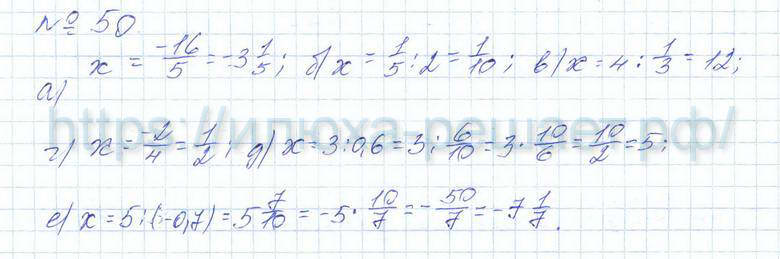 № 50
а) x = -16/5 = -3 1/5; б) x = 1/5 : 2 = 1/10; в) x = 4 : 1/3 = 12;
https://илюха-решает.рф/
г) x = -2/4 = 1/2; д) x = 3 : 0,6 = 3 : 6/10 = 3 · 10/6 = 10/2 = 5;
е) x = 5 : (-0,7) = 5 7/10 = -5 · 10/7 = -50/7 = -7 1/7.